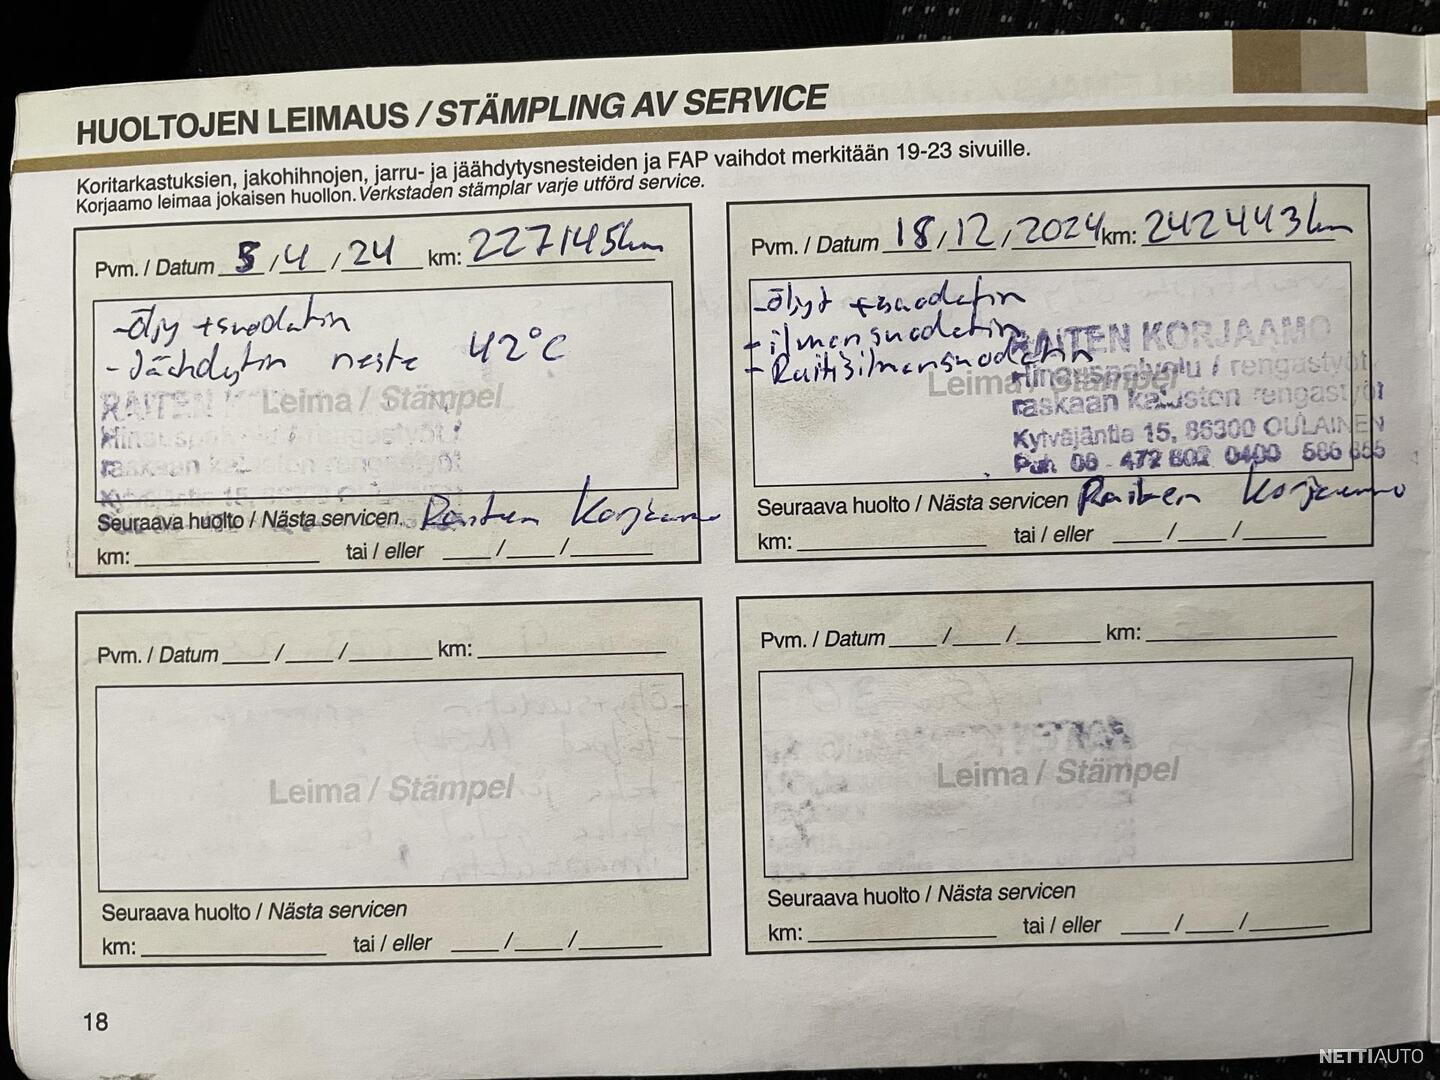 HUOLTOJEN LEIMAUS / STÄMPLING AV SERVICE
Koritarkastuksien, jakohihnojen, jarru- ja jäähdytysnesteiden ja FAP vaihdot merkitään 19-23 sivuille.
Korjaamo leimaa jokaisen huollon. Verkstaden stämplar varje utförd service.
Pvm. / Datum 5 / 4 / 24 km: 227145km
-Öljy +suodatin
-Jäähdytin neste 42°C
Leima / Stämpel
RAITEN
Hinauspalvelu / rengastyöt /
raskaan kaluston rengastyöt
Kytväjäntie 15,
Seuraava huolto / Nästa servicen Raiten Korjaamo
km: ____ tai / eller ___/___/____
Pvm. / Datum 18 / 12 / 2024 km: 242443km
-Öljyt +suodatin
-ilmansuodatin
-Raitisilmansuodatin
Leima / Stämpel
RAITEN KORJAAMO
Hinauspalvelu / rengastyöt
raskaan kaluston rengastyöt
Kytväjäntie 15, 86300 OULAINEN
Puh 08 - 472 802 0400
Seuraava huolto / Nästa servicen Raiten Korjaamo
km: ____ tai / eller ___/___/____
Pvm. / Datum ___/___/____ km: ____
Leima / Stämpel
Seuraava huolto / Nästa servicen
km: ____ tai / eller ___/___/____
Pvm. / Datum ___/___/____ km: ____
Leima / Stämpel
Seuraava huolto / Nästa servicen
km: ____ tai / eller ___/___/____
18
NETTIAUTO